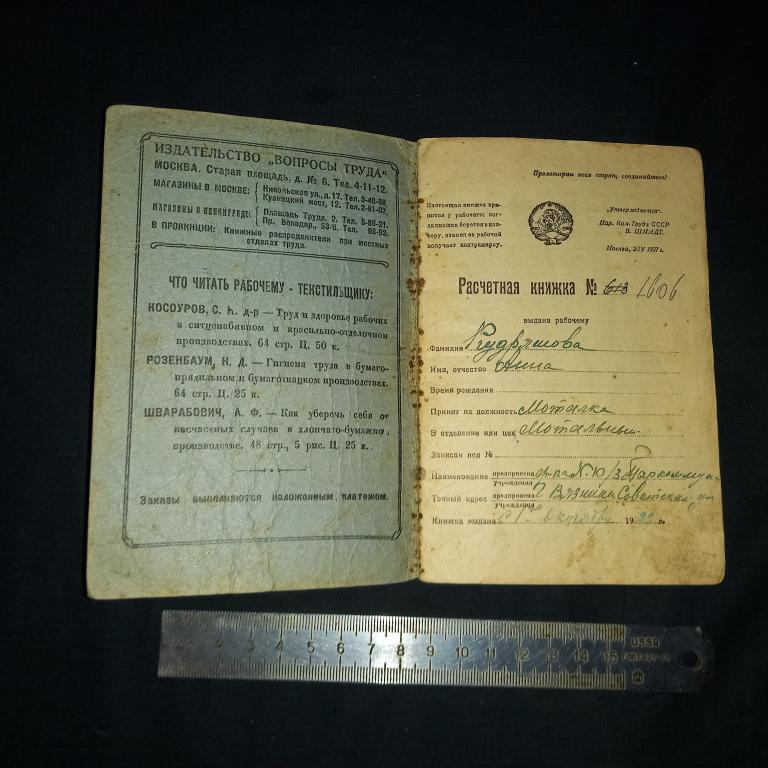 ИЗДАТЕЛЬСТВО „ВОПРОСЫ ТРУДА“
МОСКВА. Старая площадь, д. № 6. Тел. 4-11-12.
МАГАЗИНЫ В МОСКВЕ: Никольская ул., д. 17. Тел. 3-48-68.
Кузнецкий мост, 12. Тел. 2-81-02.
МАГАЗИНЫ В ЛЕНИНГРАДЕ: Площадь Труда, 2. Тел. 5-86-21.
Пр. Володар., 53/5. Тел. 98-92.
В ПРОВИНЦИИ: Книжные распределители при местных
отделах труда.
ЧТО ЧИТАТЬ РАБОЧЕМУ - ТЕКСТИЛЬЩИКУ:
КОСОУРОВ, С. д-р — Труд и здоровье рабочих
в ситценабивном и красильно-отделочном
производствах. 64 стр. Ц. 50 к.
РОЗЕНБАУМ, Н. Д. — Гигиена труда в бумаго-
прядильном и бумаготкацком производствах.
64 стр. Ц. 25 к.
ШВАРАБОВИЧ, А. Ф. — Как уберечь себя от
несчастных случаев в хлопчато-бумажн.
производстве. 48 стр., 5 рис. Ц. 25 к.
Заказы выполняются наложенным платежом.
Пролетарии всех стран, соединяйтесь!
Настоящая книжка хра-
нится у рабочего; ког-
да книжка берется в кон-
тору, взамен ее рабочий
получает контрамарку.
„Утверждается“.
Нар. Ком. Труда СССР
В. ШМИДТ.
Москва, 2/IV 1927 г.
Расчетная книжка № 613 1606
выдана рабочему
Фамилия Кудряшова
Имя, отчество Анна
Время рождения
Принят на должность Моталка
В отделение или цех Мотальный
Записан под №
Наименование предприятия
учреждения
Точный адрес предприятия г. Вязники Советская
учреждения
Книжка выдана с 1 Октября 19 г.
1 2 3 4 5 6 7 8 9 10 11 12 13 14 15
USSR
ГОСТ 427-